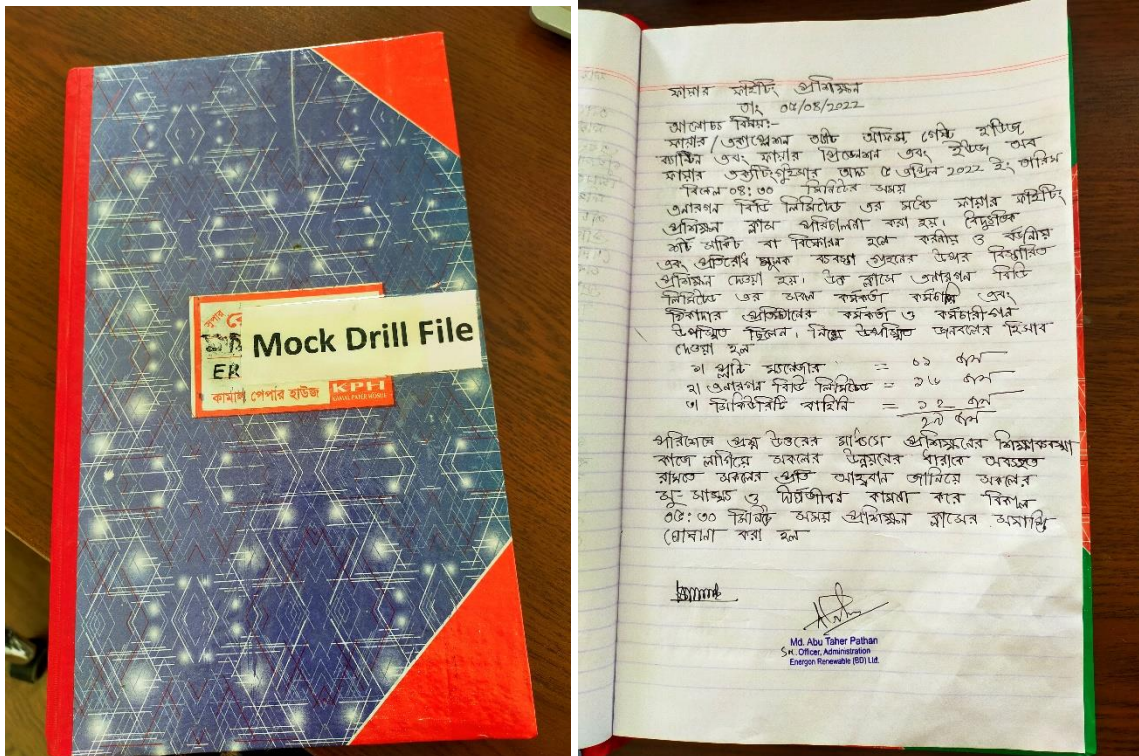 Mock Drill File
ER
কামাল পেপার হাউজ
KPH
KAMAL PAPER HOUSE
ফায়ার ফাইটিং প্রশিক্ষন
তাং ০৫/০৪/2022
আলোচ্য বিষয়:-
ফায়ার/এক্সপ্লোশন এ্যাট অফিস, গেস্ট হাউজ
এবং ফায়ার প্রিভেনশন এবং ইউজ অব
ফায়ার এক্সটিংগুইসার অদ্য ৫ এপ্রিল 2022 ইং তারিখ
বিকেল ০৪:৩০ মিনিটের সময়
এনারগন বিডি লিমিটেড এর মধ্যে ফায়ার ফাইটিং
প্রশিক্ষন ক্লাস পরিচালনা করা হয়। বৈদ্যুতিক
শর্ট সার্কিট বা বিস্ফোরন হলে করনীয় ও বর্জনীয়
এবং প্রতিরোধ মূলক ব্যবস্থা গ্রহনের উপর বিস্তারিত
প্রশিক্ষন দেওয়া হয়। উক্ত ক্লাসে এনারগন বিডি
লিমিটেড এর সকল কর্মকর্তা কর্মচারি এবং
ঠিকাদার প্রতিষ্ঠানের কর্মকর্তা ও কর্মচারী-গন
উপস্থিত ছিলেন। নিম্নে উপস্থিত জনবলের হিসাব
দেওয়া হল
১। প্লান্ট ম্যানেজার = ০১ জন
২। এনারগন বিডি লিমিটেড = ১৬ জন
৩। সিকিউরিটি বাহিনি = ১২ জন
২৯ জন
পরিশেষে প্রশ্ন উত্তরের মাধ্যমে প্রশিক্ষনের
কাজে লাগিয়ে সকলের উন্নয়নের ধারাকে অব্যহত
রাখতে সকলের প্রতি আহ্বান জানিয়ে সকলের
সু-সাস্থ্য ও দীর্ঘজীবন কামনা করে বিকাল
০৫:৩০ মিনিট সময় প্রশিক্ষন ক্লাসের সমাপ্তি
ঘোষনা করা হল
Md. Abu Taher Pathan
Sr. Officer, Administration
Energon Renewable (BD) Ltd.